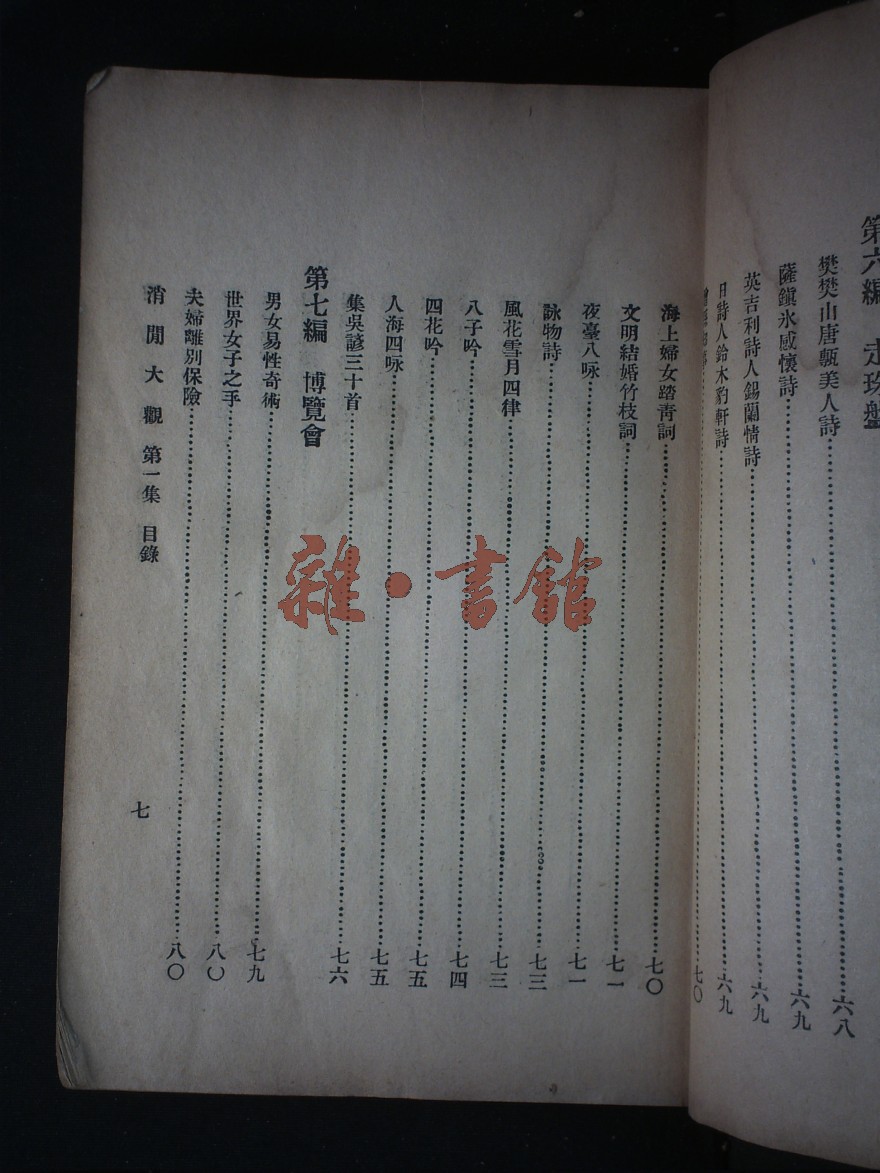 第六編 走珠盤
樊樊山唐甎美人詩……六八
薩鎭氷感懷詩……六九
英吉利詩人錫蘭情詩……六九
日詩人鈴木豹軒詩……六九
……七〇
海上婦女踏青詞……七〇
文明結婚竹枝詞……七一
夜臺八咏……七一
詠物詩……七三
風花雪月四律……七三
八子吟……七四
四花吟……七五
人海四咏……七五
集吳諺三十首……七六
第七編 博覽會
男女易性奇術……七九
世界女子之手……八〇
夫婦離別保險……八〇
消閒大觀 第一集 目錄
七
雜·書館